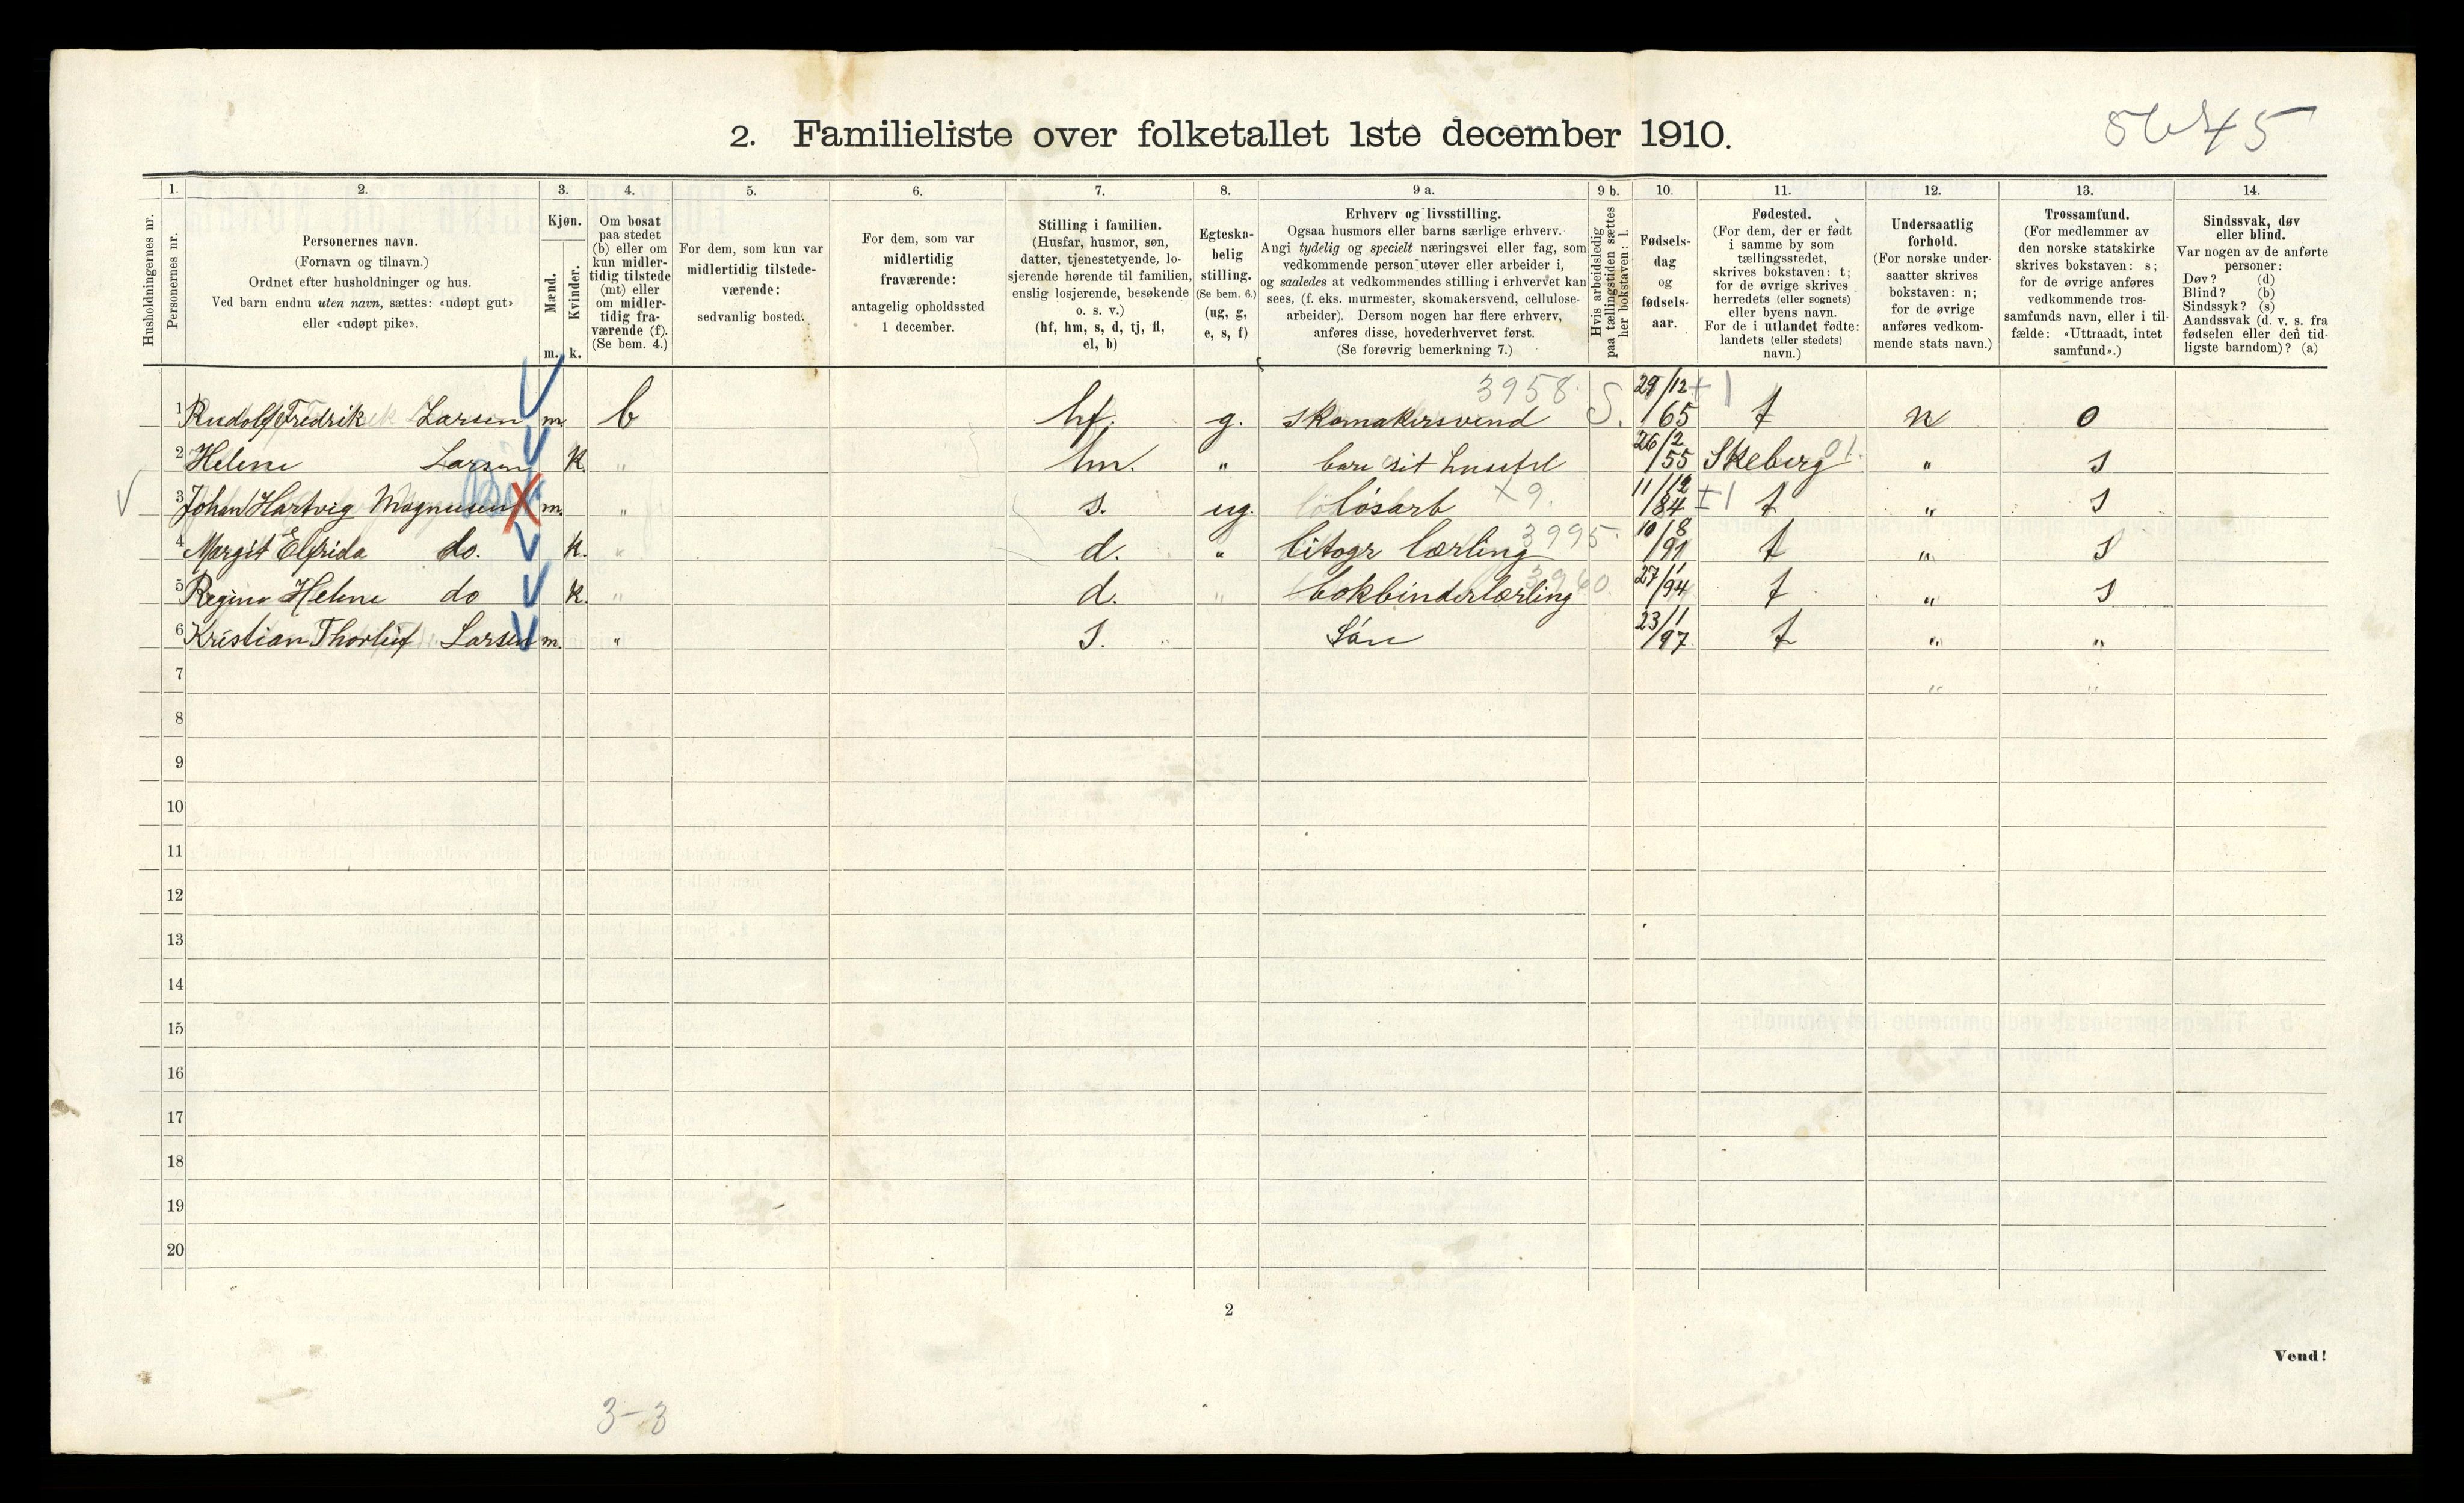 5645
2. Familieliste over folketallet 1ste december 1910.
1. 2. 3. 4. 5. 6. 7. 8. 9 a. 9 b. 10. 11. 12. 13. 14.
Husholdningernes nr.
Personernes nr.
Personernes navn.
(Fornavn og tilnavn.)
Ordnet efter husholdninger og hus.
Ved barn endnu uten navn, sættes: «udøpt gut»
eller «udøpt pike».
Kjøn.
Mænd.
Kvinder.
m. k.
Om bosat
paa stedet
(b) eller om
kun midler-
tidig tilstede
(mt) eller
om midler-
tidig fra-
værende (f).
(Se bem. 4.)
For dem, som kun var
midlertidig tilstede-
værende:
sedvanlig bosted.
For dem, som var
midlertidig
fraværende:
antagelig opholdssted
1 december.
Stilling i familien.
(Husfar, husmor, søn,
datter, tjenestetyende, lo-
sjerende hørende til familien,
enslig losjerende, besøkende
o. s. v.)
(hf, hm, s, d, tj, fl,
el, b)
Egteska-
belig
stilling.
(Se bem. 6.)
(ug, g,
e, s, f)
Erhverv og livsstilling.
Ogsaa husmors eller barns særlige erhverv.
Angi tydelig og specielt næringsvei eller fag, som
vedkommende person utøver eller arbeider i,
og saaledes at vedkommendes stilling i erhvervet kan
sees, (f. eks. murmester, skomakersvend, cellulose-
arbeider). Dersom nogen har flere erhverv,
anføres disse, hovederhvervet først.
(Se forøvrig bemerkning 7.)
Hvis arbeidsledig
paa tællingstiden sættes
her bokstaven: l.
Fødsels-
dag
og
fødsels-
aar.
Fødested.
(For dem, der er født
i samme by som
tællingsstedet,
skrives bokstaven: t;
for de øvrige skrives
herredets (eller sognets)
eller byens navn.
For de i utlandet fødte:
landets (eller stedets)
navn.)
Undersaatlig
forhold.
(For norske under-
saatter skrives
bokstaven: n;
for de øvrige
anføres vedkom-
mende stats navn.)
Trossamfund.
(For medlemmer av
den norske statskirke
skrives bokstaven: s;
for de øvrige anføres
vedkommende tros-
samfunds navn, eller i til-
fælde: «Uttraadt, intet
samfund».)
Sindssvak, døv
eller blind.
Var nogen av de anførte
personer:
Døv? (d)
Blind? (b)
Sindssyk? (s)
Aandssvak (d. v. s. fra
fødselen eller den tid-
ligste barndom)? (a)
1 Rudolf Fredrik Larsen m. b hf. g. skomakersvend 3958. S. 29/12 65 +1 t n 0
2 Helene Larsen k. " hm. " bare sit husstel 26/2 55 Skeberg 01. " s
3 Johan Hartvig Magnusen m. " s. ug. løsarb +9. 11/12 84 ±1 t " s
4 Margit Elfrida do. k. " d. " litogr lærling 3995. 10/8 91 t " s
5 Regine Helene do k. " d. " bokbinderlærling 3960. 27/1 94 t " s
6 Kristian Thorleif Larsen m. " s. Søn 23/1 97 t " "
7 " "
8
9
10
11
12
13
14
15
16
17
18
19
20
2
Vend!
3-3